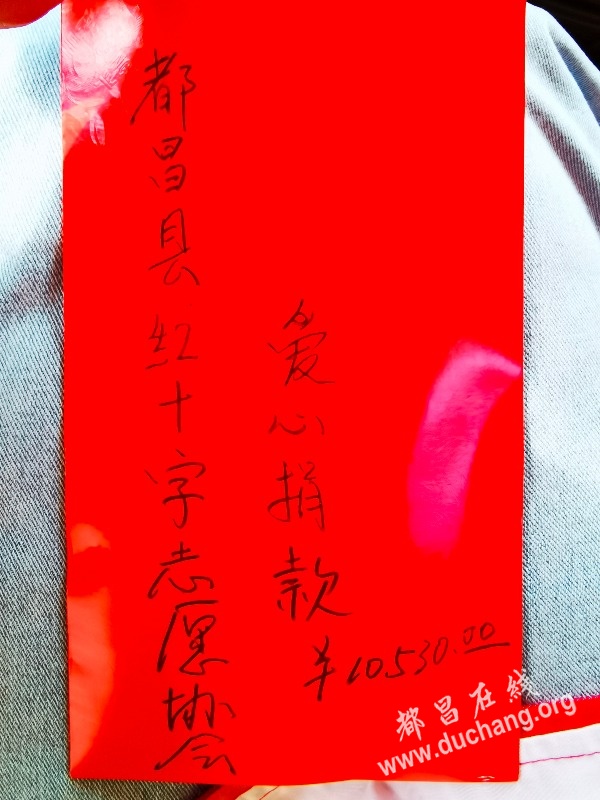 都昌县红十字志愿协会
爱心捐款
¥10530.00
都昌在线
www.duchang.org